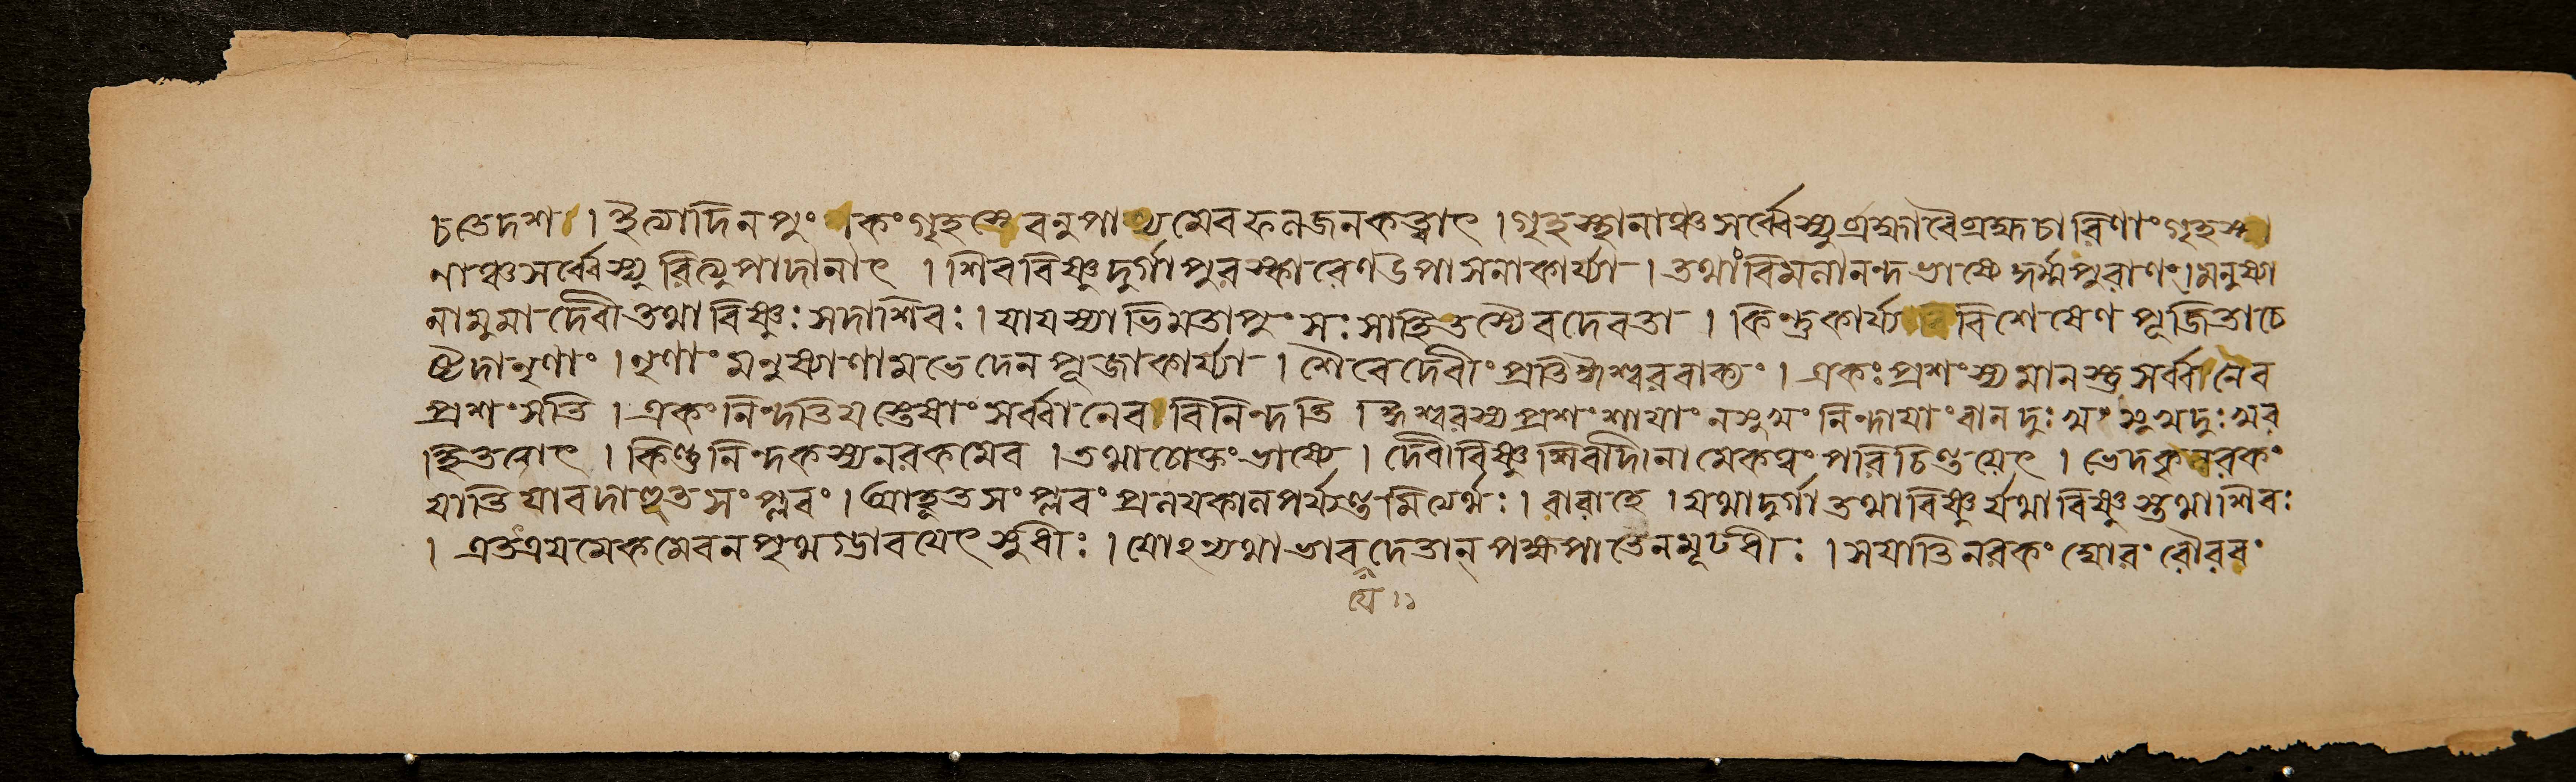 চভেদশ । ইত্যাদিন পুং কং গৃহস্থেবনুপাস্থমেবফলজনকত্বাৎ । গৃহস্থানাঞ্চসর্ব্বেস্যুর্ব্রহ্মাবৈব্রহ্মচারিণাং গৃহস্থা
নাঞ্চসর্ব্বেস্যুরিত্যুপাদানাৎ । শিববিষ্ণুদুর্গাপুরস্কারেণউপাসনাকার্য্যা । তথাবিমলানন্দভাষ্যেকূর্ম্মপুরাণং । মনুষ্যা
নামুমাদেবীতথাবিষ্ণুঃসদাশিবঃ । যাযস্যাভিমতাপুংসঃসাহিতস্যৈবদেবতা । কিন্তুকার্য্য বিশেষেণপূজিতাচে
ষ্টদানৃণাং । নৃণাংমনুষ্যাণামভেদেনপূজাকার্য্যা । শৈবেদেবীংপ্রতিঈশ্বরবাক্যং । একঃপ্রশংস্যমানস্তুসর্ব্বানেব
প্রশংসতি । একংনিন্দতিযস্তেষাংসর্ব্বানেববিনিন্দতি । ঈশ্বরস্যপ্রশংশাযাংনসুখংনিন্দাযাংবানদুঃখংসুখদুঃখব
হিতবোৎ । কিন্তুনিন্দকস্যনরকমেব । তথাচোক্তংভাষ্যে । দেবীবিষ্ণুশিবাদীনামেকত্বংপরিচিন্তয়েৎ । ভেদকৃন্নরকং
যাতিযাবদাহূতসংপ্লবং । আহূতসংপ্লবংপ্রলযকালপর্য্যন্তমিত্যর্থঃ । বারাহে । যথাদুর্গাতথাবিষ্ণুর্যথাবিষ্ণুস্তথাশিবঃ
। এতত্ত্রযমেকমেবনপৃথগ্ভাবযেৎসুধীঃ । যোঽন্যথাভাবদেতান্পক্ষপাতেনমূঢধীঃ । সযাতিনরকংঘোরংরৌরবং
যে ।১